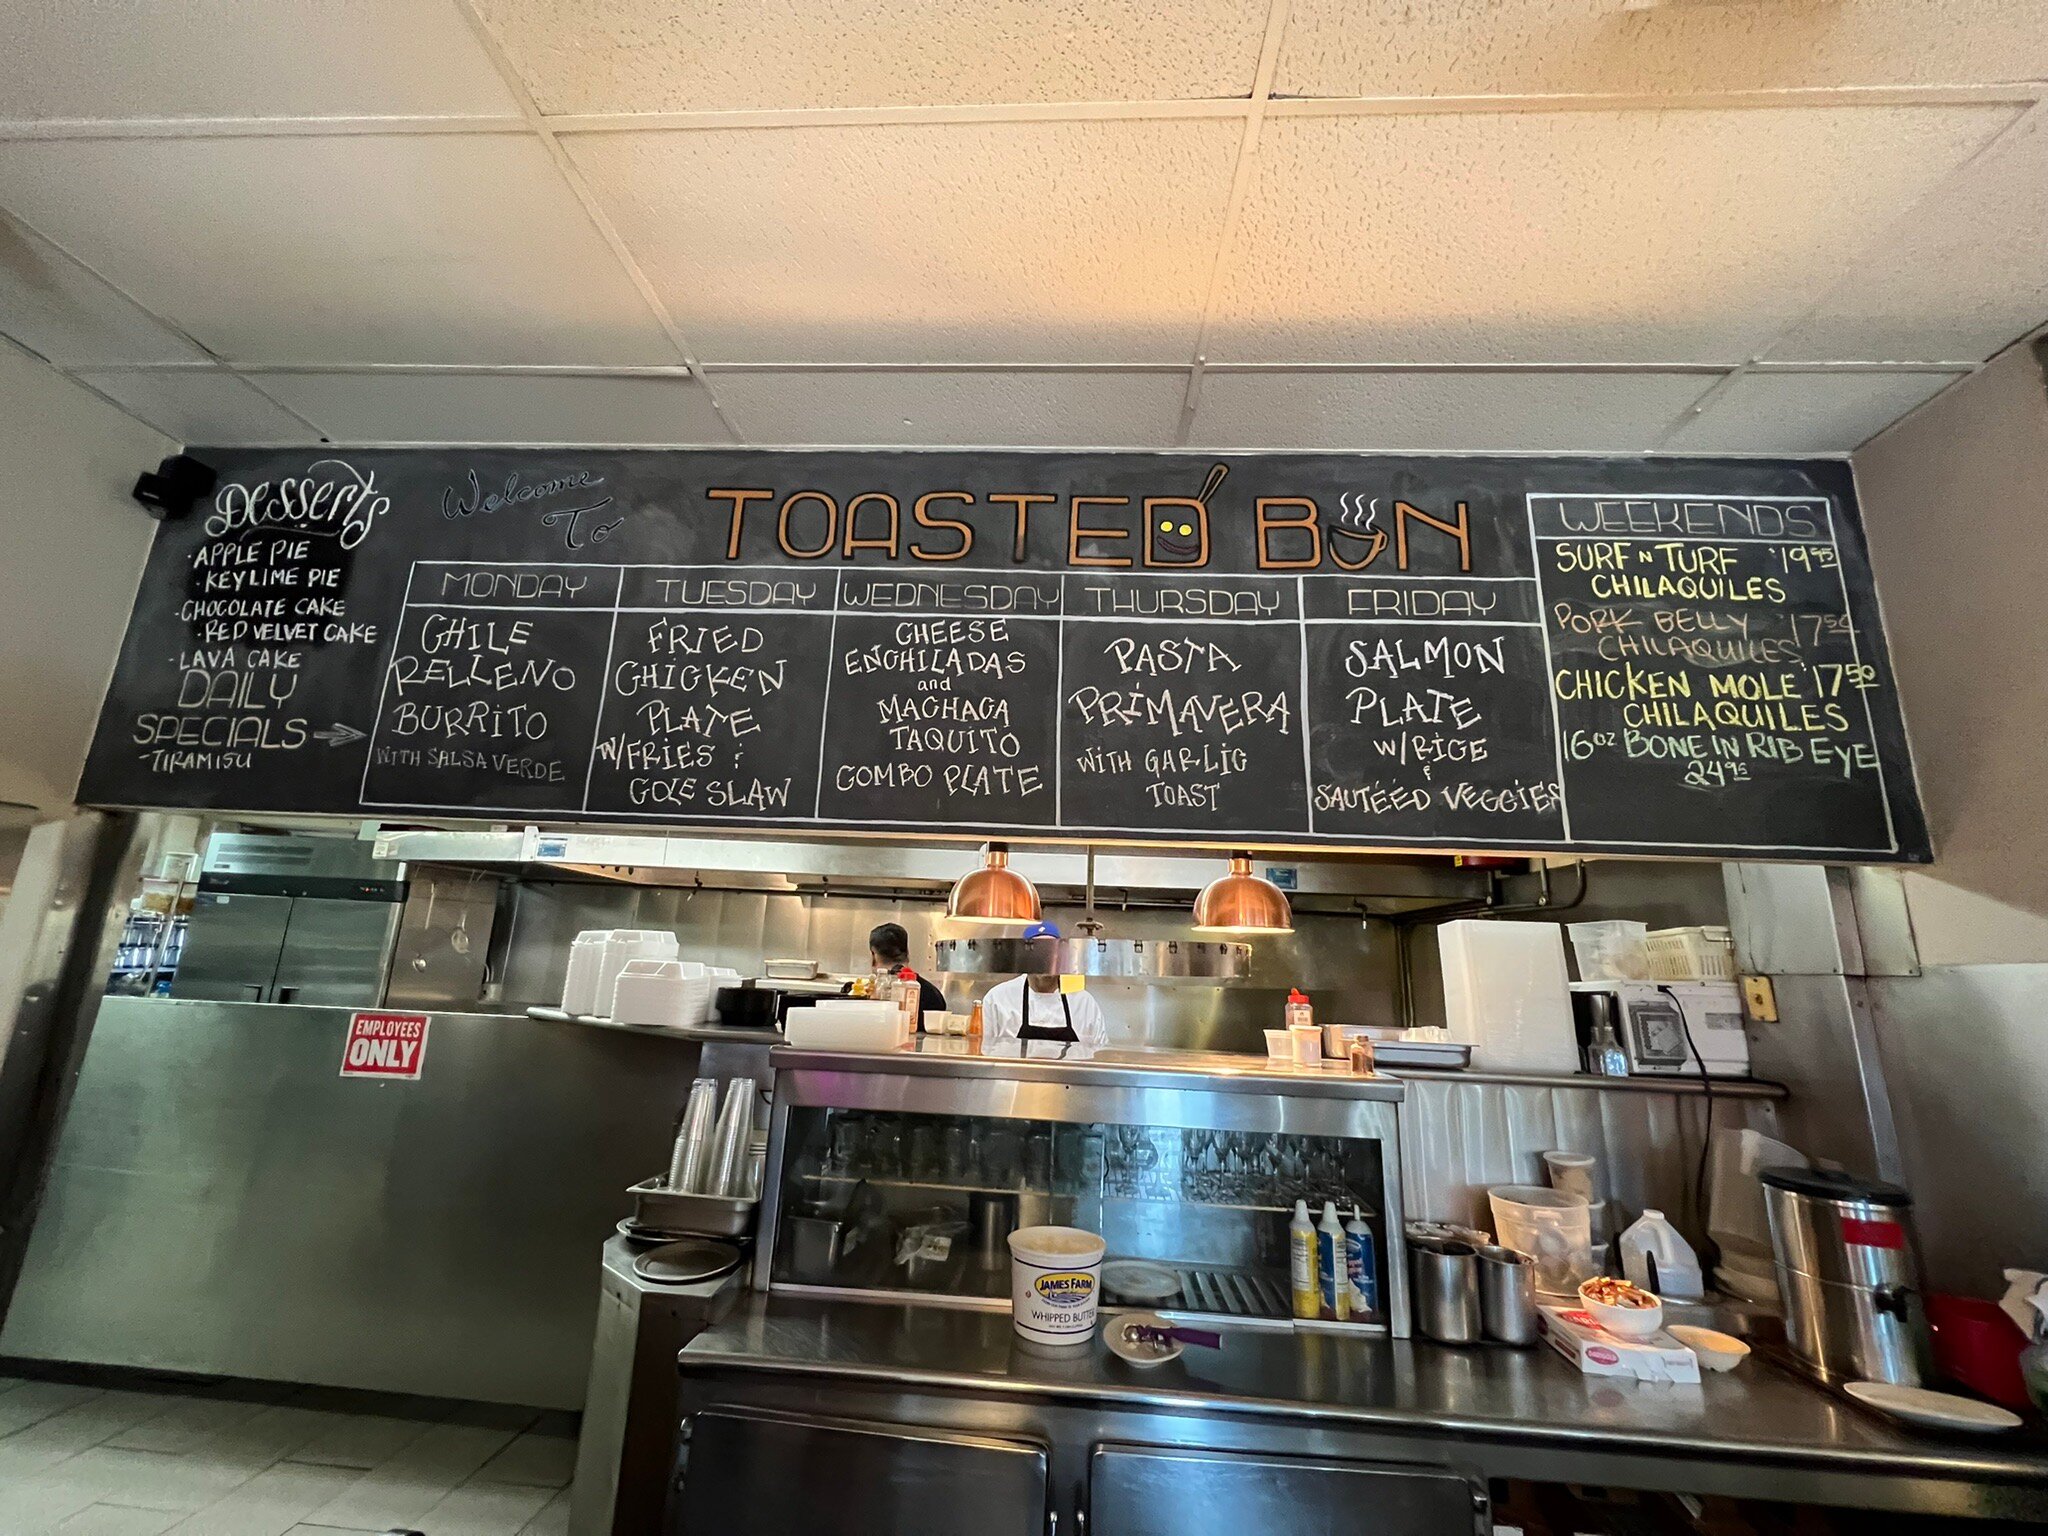 Desserts
· APPLE PIE
· KEY LIME PIE
· CHOCOLATE CAKE
· RED VELVET CAKE
- LAVA CAKE
DAILY
SPECIALS
- TIRAMISU
Welcome
To
TOASTED BUN
MONDAY
CHILE
RELLENO
BURRITO
WITH SALSA VERDE
TUESDAY
FRIED
CHICKEN
PLATE
W/FRIES &
COLE SLAW
WEDNESDAY
CHEESE
ENCHILADAS
and
MACHACA
TAQUITO
COMBO PLATE
THURSDAY
PASTA
PRIMAVERA
WITH GARLIC
TOAST
FRIDAY
SALMON
PLATE
W/RICE
&
SAUTÉÉD VEGGIES
WEEKENDS
SURF N TURF $19.95
CHILAQUILES
PORK BELLY $17.50
CHILAQUILES
CHICKEN MOLE $17.50
CHILAQUILES
16oz BONE IN RIB EYE
24.95
EMPLOYEES
ONLY
JAMES FARM
WHIPPED BUTTER